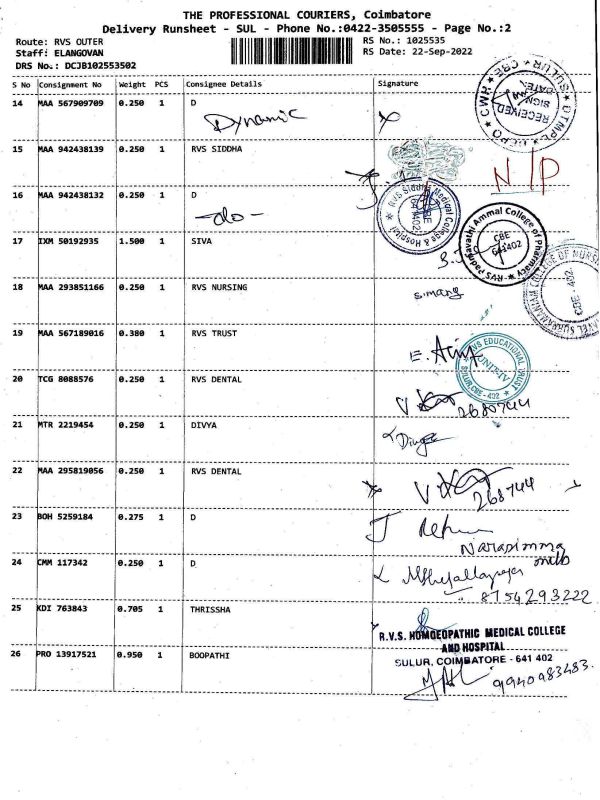 THE PROFESSIONAL COURIERS, Coimbatore
Delivery Runsheet - SUL - Phone No.:0422-3505555 - Page No.:2
Route: RVS OUTER
RS No.: 1025535
Staff: ELANGOVAN
RS Date: 22-Sep-2022
DRS No.: DCJB102553502
S No Consignment No Weight PCS Consignee Details Signature
14 MAA 567909709 0.250 1 D
Dynamic
RECEIVED
SIGN
DATE
15 MAA 942438139 0.250 1 RVS SIDDHA
N/P
16 MAA 942438132 0.250 1 D
-do-
RVS Siddha Medical College & Hospital
CBE
641402
RVS Padmavathi Ammal College of Pharmacy
CBE
641402
17 IXM 50192935 1.500 1 SIVA
CBE - 402
18 MAA 293851166 0.250 1 RVS NURSING
19 MAA 567189016 0.380 1 RVS TRUST
RVS EDUCATIONAL TRUST
UNIT-IV
SULUR, CBE - 402
20 TCG 8088576 0.250 1 RVS DENTAL
268744
21 MTR 2219454 0.250 1 DIVYA
22 MAA 295819056 0.250 1 RVS DENTAL
268744
23 BOH 5259184 0.275 1 D
Narasimma
24 CMM 117342 0.250 1 D
8754293222
25 KDI 763843 0.705 1 THRISSHA
R.V.S. HOMOEOPATHIC MEDICAL COLLEGE
AND HOSPITAL
26 PRO 13917521 0.950 1 BOOPATHI
SULUR, COIMBATORE - 641 402
9940983483.